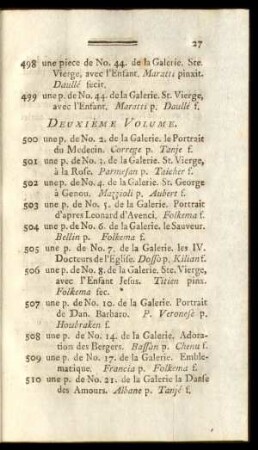 27
498 une piece de No. 44. de la Galerie. Ste.
Vierge, avec l'Enfant. Maratti pinxit.
Daullé fecit.
499 une p. de No. 44. de la Galerie. St. Vierge,
avec l'Enfant. Maratti p. Daullé f.
DEUXIÈME VOLUME.
500 une p. de No. 2. de la Galerie. le Portrait
du Medecin. Correge p. Tanje f.
501 une p. de No. 3. de la Galerie. St. Vierge,
à la Rose. Parmesan p. Taicher f.
502 une p. de No. 4. de la Galerie. St. George
à Genou. Mazzioli p. Aubert f.
503 une p. de No. 5. de la Galerie. Portrait
d'apres Leonard d'Avenci. Folkema f.
504 une p. de No. 6. de la Galerie. le Sauveur.
Bellin p. Folkema f.
505 une p. de No. 7. de la Galerie. les IV.
Docteurs de l'Eglise. Dosso p. Kilian f.
506 une p. de No. 8. de la Galerie. Ste. Vierge,
avec l'Enfant Jesus. Titien pinx.
Folkema fec.
507 une p. de No. 10. de la Galerie. Portrait
de Dan. Barbaro. P. Veronese p.
Houbraken f.
508 une p. de No. 14. de la Galerie. Adora-
tion des Bergers. Bassan p. Chenu f.
509 une p. de No. 17. de la Galerie. Emble-
matique. Francia p. Folkema f.
510 une p. de No. 21. de la Galerie la Danse
des Amours. Albane p. Tanjé f.